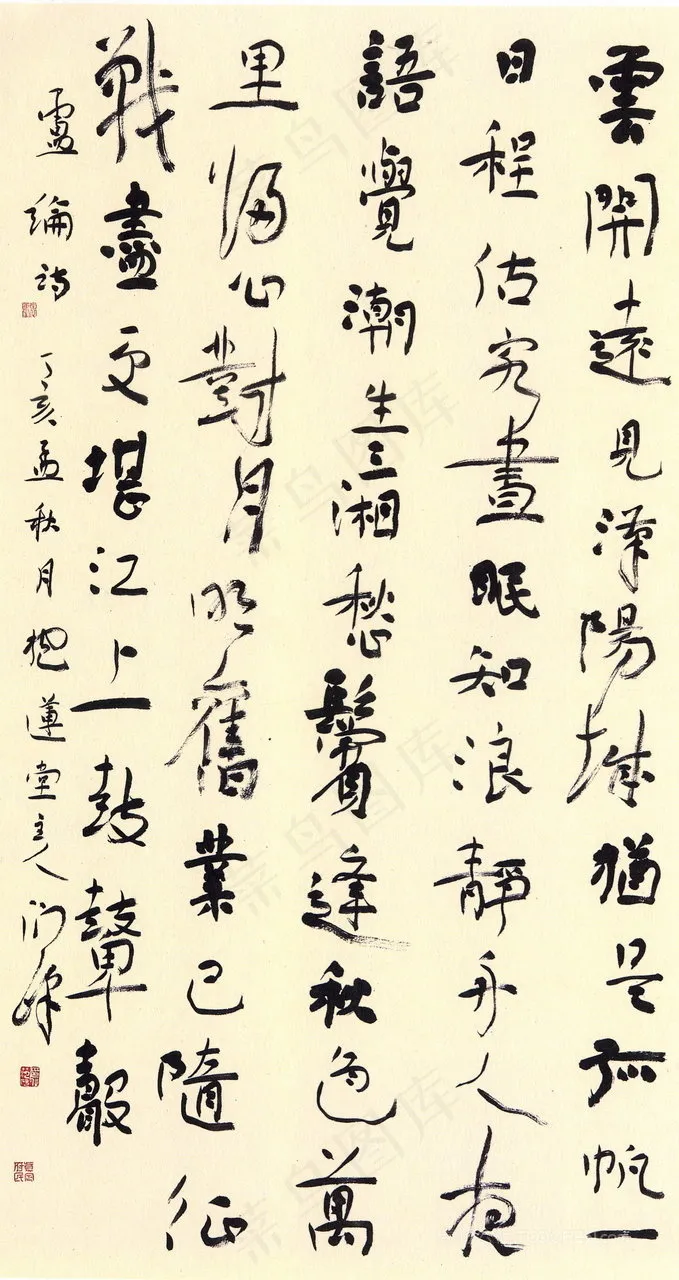 雲開遠見漢陽城猶是孤帆一
日程估客晝眠知浪靜舟人夜
語覺潮生三湘愁鬢逢秋色萬
里歸心對月明舊業已隨征
戰盡更堪江上鼓鼙聲
盧綸詩 丁亥孟秋月抱蓮堂主人
菜鸟图库